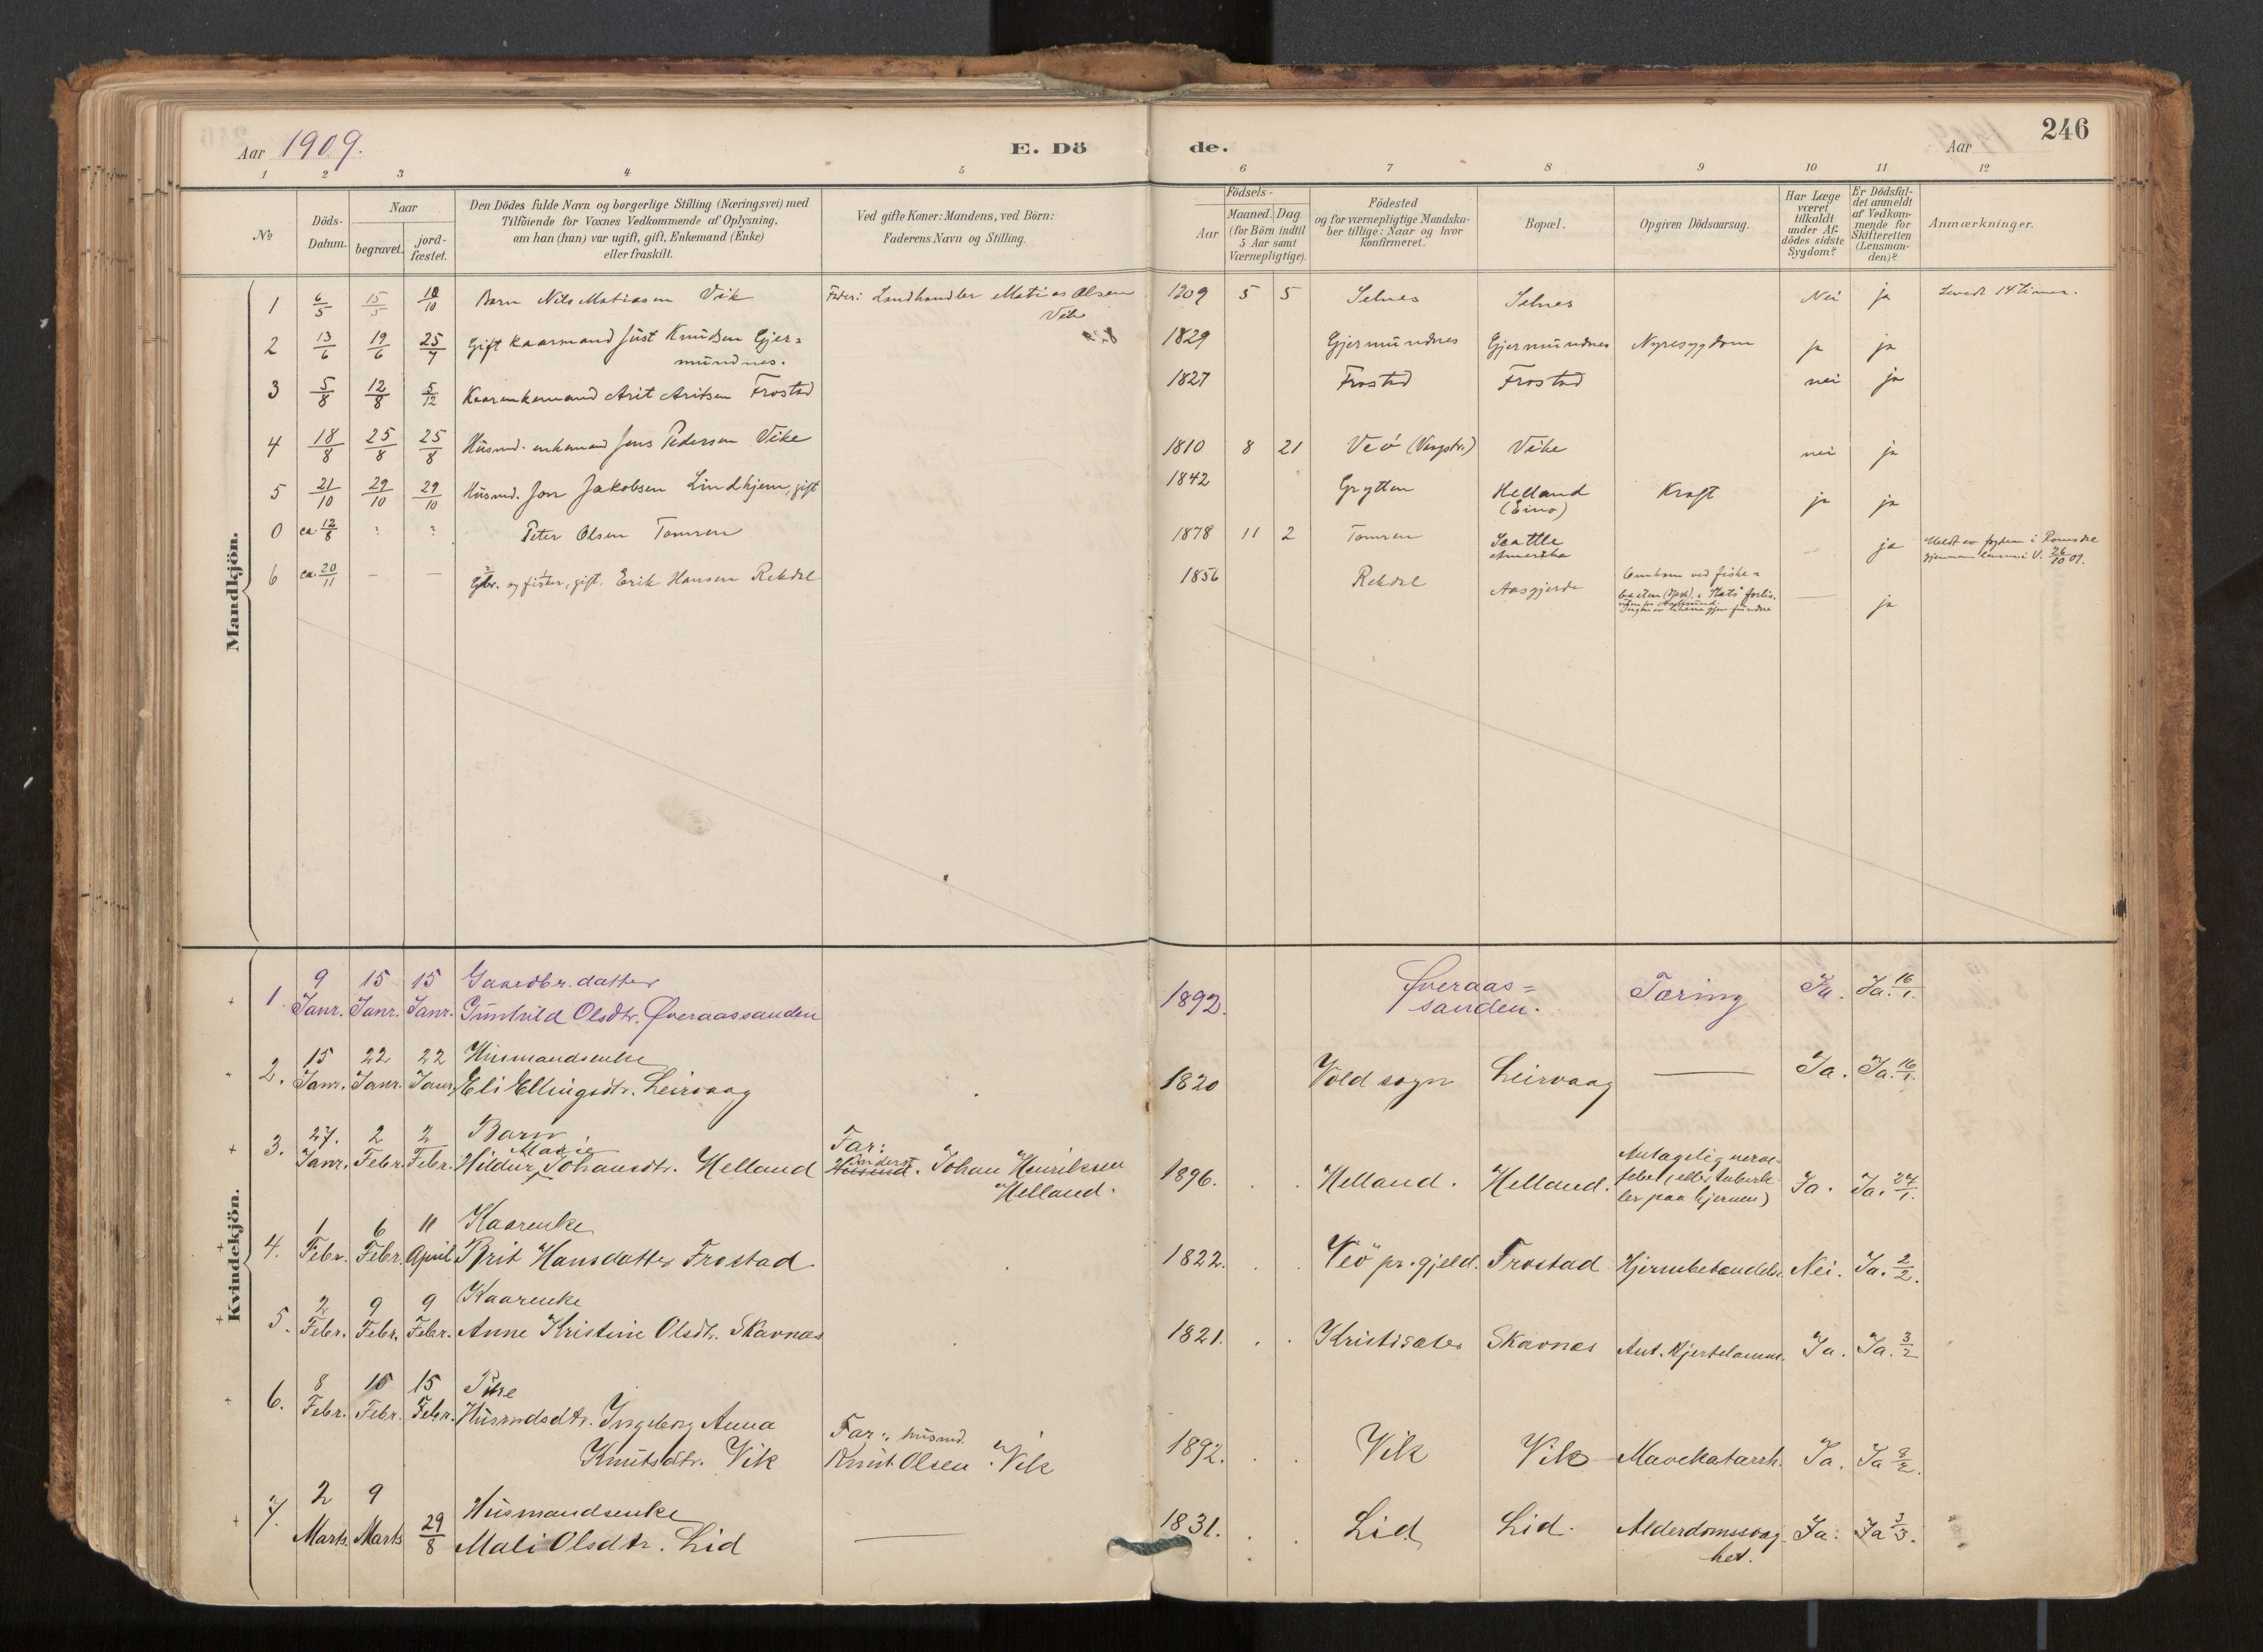 Aar 1909.
E. Dö
de.
Aar
246
1 2 3 4 5 6 7 8 9 10 11 12
No
Döds-Datum.
Naar
begravet.
jord-fæstet.
Den Dödes fulde Navn og borgerlige Stilling (Næringsvei) med
Tilföiende for Voxnes Vedkommende af Oplysning,
om han (hun) var ugift, gift, Enkemand (Enke)
eller fraskilt.
Ved gifte Koner: Mandens, ved Börn:
Faderens Navn og Stilling.
Födsels-
Aar
Maaned. Dag
(for Börn indtil
5 Aar samt
Værnepligtige).
Födested
og for værnepligtige Mandska-
ber tillige: Naar og hvor
konfirmeret.
Bopæl.
Opgiven Dödsaarsag.
Har Læge
været
tilkaldt
under Af-
dödes sidste
Sygdom?
Er Dödsfal-
det anmeldt
af Vedkom-
mende for
Skifteretten
(Lensman-
den)?
Anmærkninger.
Mandkjön.
1 6/5 15/5 10/10 Barn Nils Matiasen Vik Fader: Landhandler Matias Olsen 1909 5 5 Selnes Selnes Nei ja Levede 14 timer.
Vik
2 13/6 19/6 25/7 Gift kaarmand Just Knudsen Gjer= 1829 Gjermundnes Gjermundnes Nyresygdom ja ja
mundnes.
3 5/8 12/8 5/12 Kaarenkemand Arit Aritsen Frostad 1827 Frostad Frostad nei ja
4 18/8 25/8 25/8 Husmd. enkemand Jens Pedersen Vike 1810 8 21 Veö Vike nei ja
5 21/10 29/10 29/10 Husmd. Jon Jakobsen Lindhjem, gift 1842 Grytten Helland Kræft ja ja
0 ca. 12/8 : : Peter Olsen Tomren 1878 11 2 Tomren Seattle ja Meldt av fogden i Romsdal
Amerika gjennem lensm. i V. 26/10 09.
6 ca. 20/11 — — Gbr. og fisker, gift, Erik Hansen Rekdal 1856 Rekdal Aasgjerde Omkom ved fiske= — ja
forlis.
Kvindekjön.
1. 9 Janr. 15 Janr. 15 Janr. Gaardbr. datter
Gunhild Olsdtr. Øveraassanden 1892. Øveraas=
sanden. Tæring Ja. Ja. 16/1.
2. 15 Janr. 22 Janr. 22 Janr. Husmandsenke
Eli Ellingsdtr. Leirvaag 1820 Vold sogn Leirvaag — Ja. Ja. 16/1.
3. 27. Janr. 2 Febr. 2 Febr. Barn
Hildur Marie Johansdtr. Helland Far:
Husmd. Inderst Johan Henriksen
Helland. 1896. Helland. Helland. Antagelig nerve-
feber (eller tuberk-
ler paa hjernen) Ja. Ja. 27/1.
4. 1 Febr. 6 Febr. 11 April Kaarenke
Brit Hansdatter Frostad 1822. Veö pr.gjeld. Frostad Hjernebetændelse Nei. Ja. 2/2.
5. 2 Febr. 9 Febr. 9 Febr. Kaarenke
Anne Kristine Olsdtr. Skavnes 1821. Kristisæter Skavnes Ant. Hjertelamm. Ja. Ja. 3/2
6. 8 Febr. 15 Febr. 15 Febr. Pike
Husmdsdtr. Ingeborg Anna
Knutsdtr. Vik Far: husmd.
Knut Olsen Vik 1892. Vik Vik Mavekatarrh. Ja. Ja 9/2.
7. 2 Marts. 9 Marts 29/8 Husmandsenke
Mali Olsdtr. Lid — 1831. Lid Lid. Alderdomssvag
het. Ja. Ja 3/3.